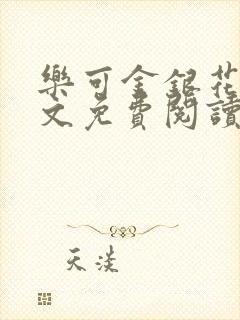 樂可金銀花
文免費閱讀
天淡